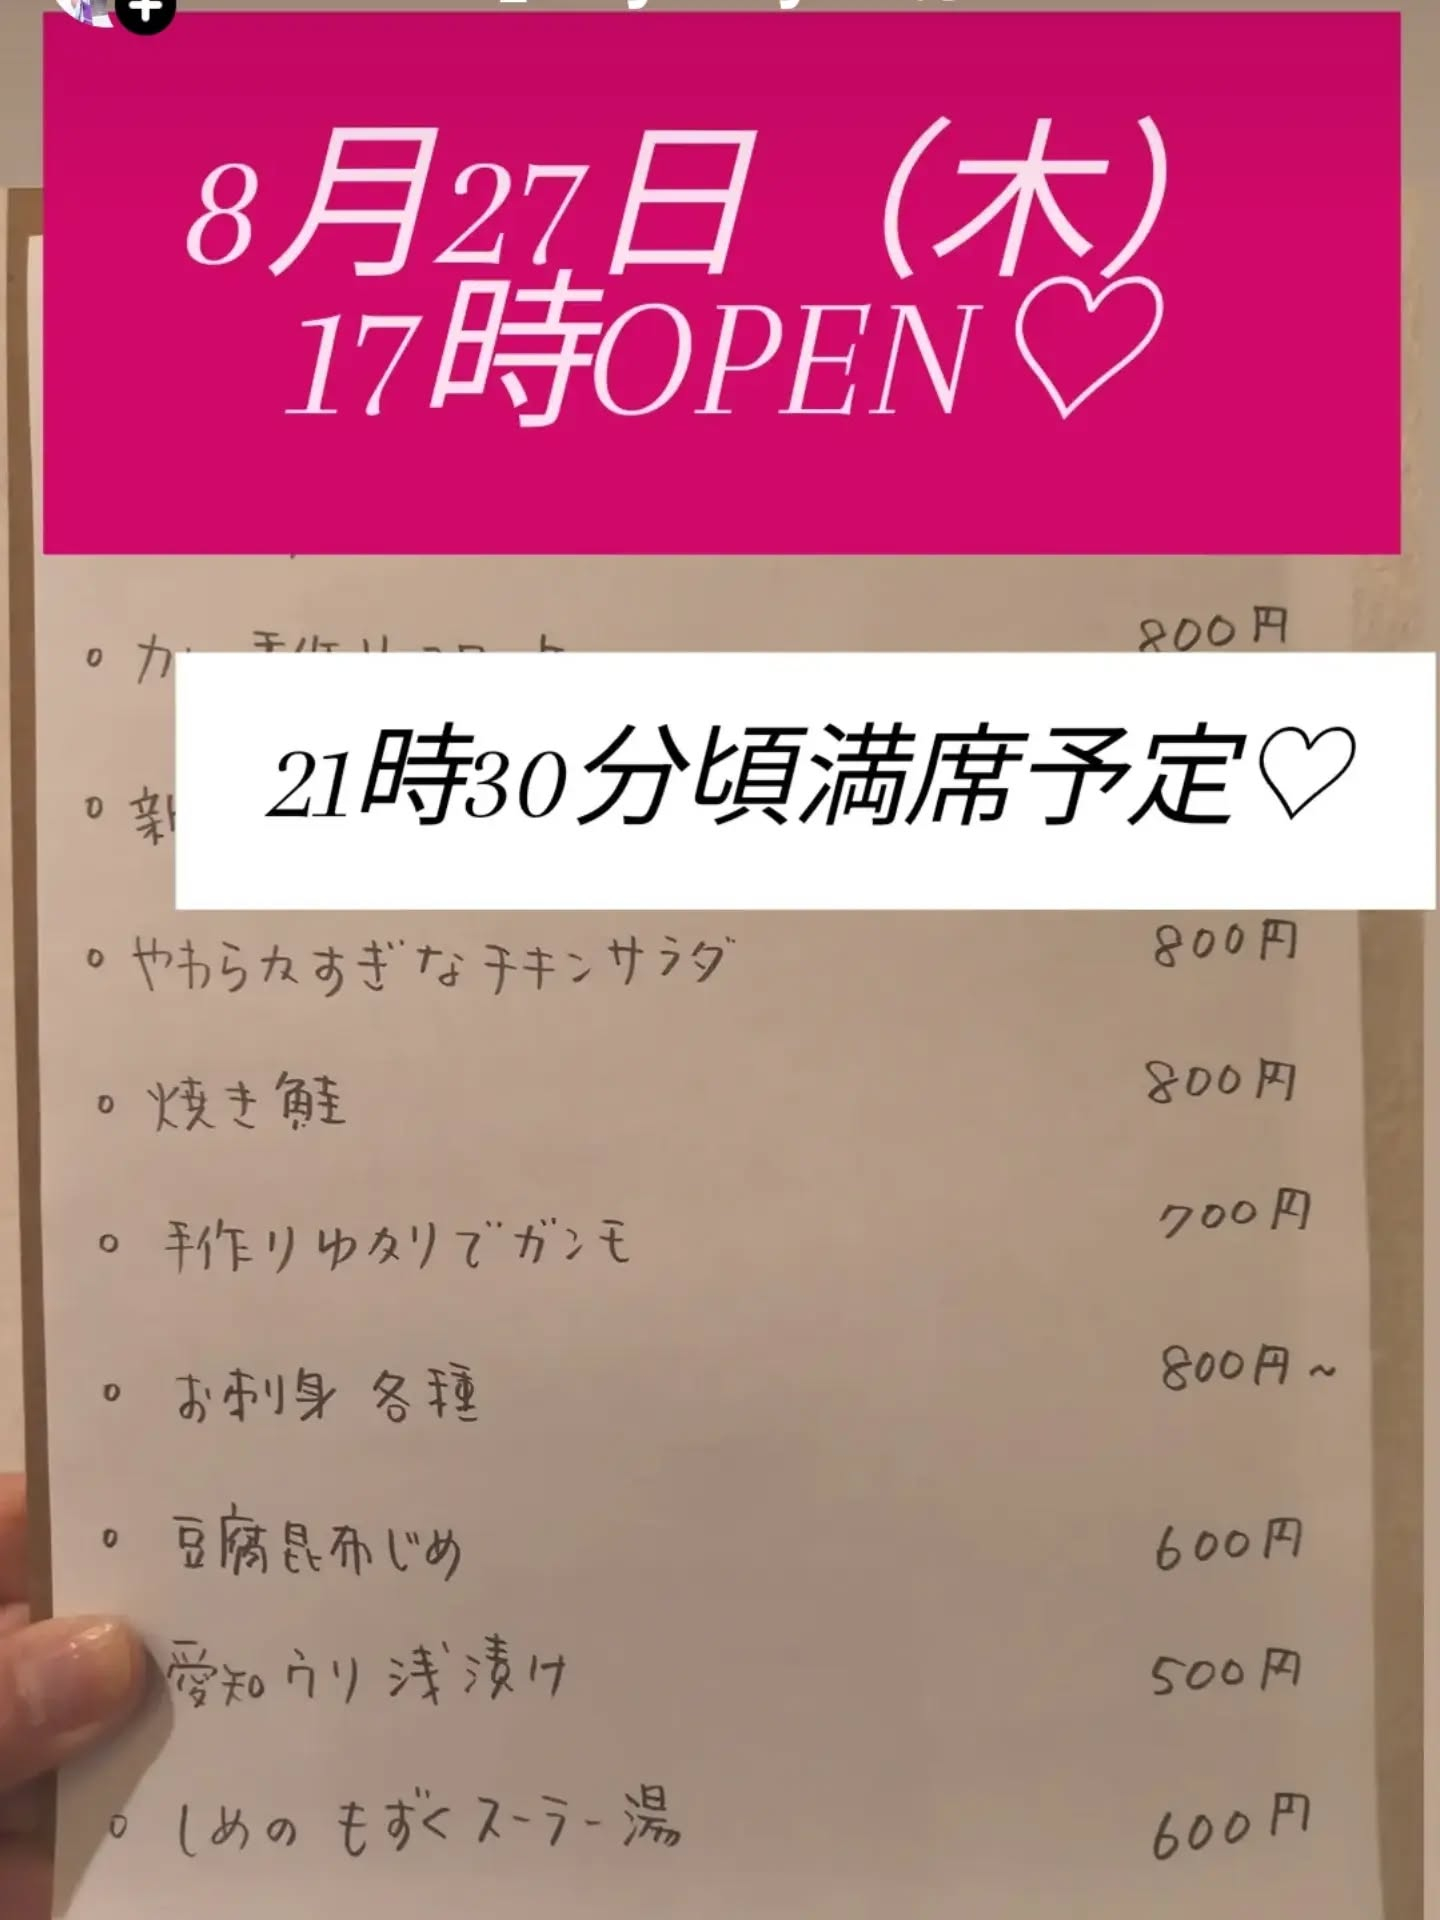 8月27日（木）
17時OPEN♡
800円
21時30分頃満席予定♡
。新
。やわらカすぎなチキンサラダ 800円
。焼き鮭 800円
。手作りゆカリでガンモ 700円
。お刺身 各種 800円~
。豆腐昆布じめ 600円
愛知ウリ浅漬け 500円
。しめの もずくスーラー湯 600円